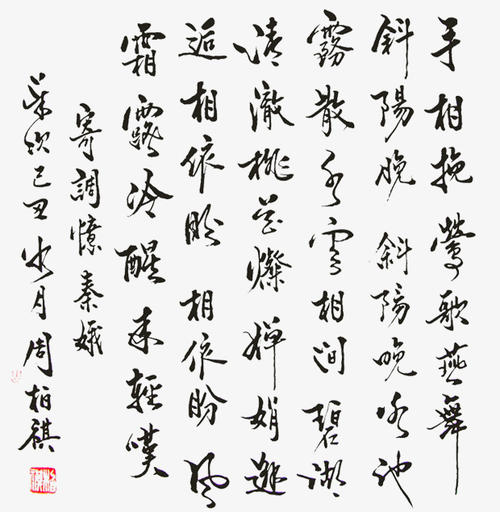 手相挽鶯歌燕舞
斜陽晚斜陽晚吟池
霧散水雲相间碧湖
清澈桃花燦嬋娟邂
逅相依盼相依盼風
霜露冷醒来輕嘆
寄調憶秦娥
歲次己丑月周柏祺